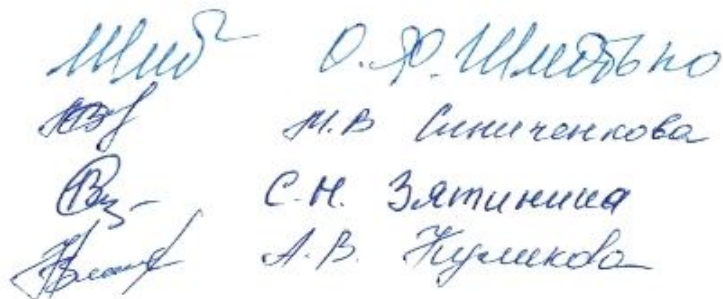 О.Ю. Шмотько
М.В Синиченкова
С.Н. Зятинина
А.В. Куликова